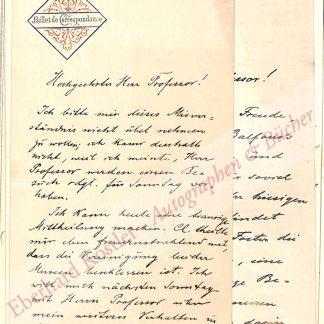 Billet de Correspondance
Hochgeehrter Herr Professor!
Ich bitte mir dieses Missver-
ständnis nicht übel nehmen
zu wollen; ich kam deshalb
nicht, weil ich meinte, Herr
Professor würden einen Be-
such vdgl. für Sonntag vor
haben.
Ich kann heute eine traurige
Mittheilung machen. Cl. theilte
mir eben mit,
dass die Vereinigung beider
Museen ist. Ich
will mich nächsten Sonntag
mit Herrn Professor über
mein weiteres Verhalten in
ssor!
Freude
Balfour
und
soviel
hiesigen
findet
Foster die
eine
ge Be-
einen
so
Eberhard Köstler Autographen & Bücher